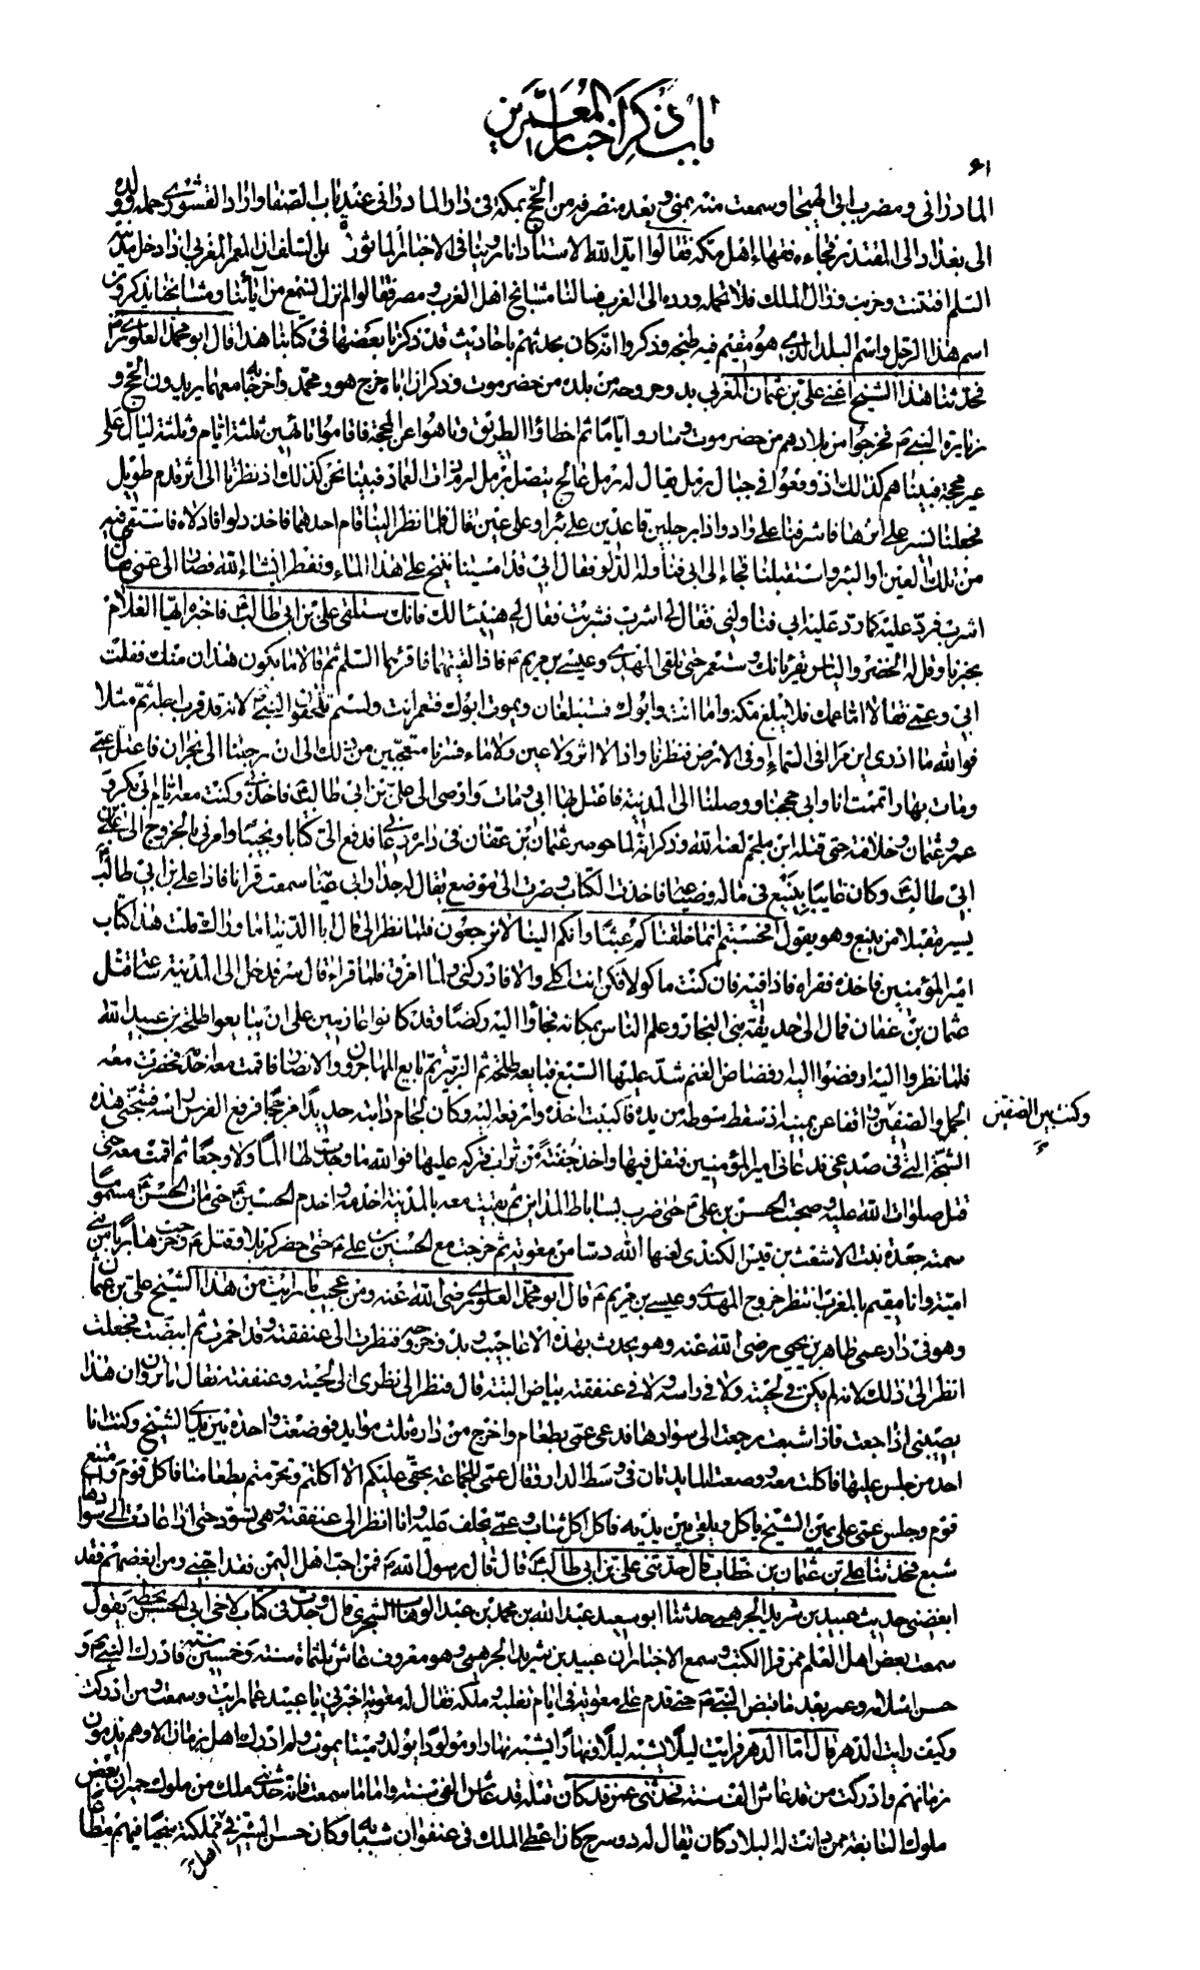 باب ذكر اخبار المعمرين
٤١
الماذراني ومضرب ابي الهيجا وسمعت منه بمنى وبعد منصرفه من الحج بمكة في دار الماذراني عند باب الصفا واراد القشوري حمله وولده
الى بغداد الى المقتدر فجاءه فقهاء اهل مكة فقالوا ايد الله الاستاذ انا روينا في الاخبار الماثورة عن السلف ان المعمر المغربي اذا دخل مدينة
السلم افتتنت وخربت وزال الملك فلا تحمله ورده الى الغرب فسالنا مشايخ اهل الغرب ومصر فقالوا لم نزل نسمع من آبائنا ومشايخنا يذكرون
اسم هذا الرجل واسم البلد الذي هو مقيم فيه طنجه وذكروا انه كان يحدثهم باحاديث قد ذكرنا بعضها في كتابنا هذا قال ابو محمد العلوي رض
فحدثنا هذا الشيخ اعني علي بن عثمان المغربي بدو خروجه من بلده من حضرموت وذكر ان اباه خرج هو ومحمد واخرجا به معهما يريدون الحج و
زيارة النبي ص فخرجوا من بلادهم من حضرموت وساروا اياما ثم اخطاؤا الطريق وتاهوا عن المحجة فاقاموا تائهين ثلثة ايام وثلثة ليال على
غير محجة فبينا هم كذلك اذ وقعوا في جبال رمل يقال له رمل عالج يتصل برمل ارم ذات العماد فبينا نحن كذلك اذ نظرنا الى اثر قدم طويل
فجعلنا نسير على اثرها فاشرفنا على واد واذا برجلين قاعدين على بئر او على عين قال فلما نظر الينا قام احدهما فاخذ دلوا فادلاه فاستقى فيه
من تلك العين او البئر واستقبلنا فجاء الى ابي فناوله الدلو فقال ابي قد امسينا ننيخ على هذا الماء ونفطر انشاء الله فصار الى عمي فقال
اشرب فرد عليه كما رد عليه ابي فناولني فقال لي اشرب فشربت فقال لي هنيئا لك فانك ستلقى علي بن ابي طالب ع فاخبره ايها الغلام
بخبرنا وقل له الخضر والياس يقرئانك وستعمر حتى تلقى المهدي وعيسى بن مريم ع فاذا لقيتهما فاقرئهما السلم ثم قالا ما يكون هذان منك فقلت
ابي وعمي فقالا اما عمك فلا يبلغ مكة واما انت وابوك فستبلغان ويموت ابوك فتعمر انت ولستم تلحقون النبي ص لانه قد قرب اجله ثم مثلا
فوالله ما ادري اين مرا في السماء او في الارض فنظرنا واذا لا اثر ولا عين ولا ماء فسرنا متعجبين من ذلك الى ان رجعنا الى نجران فاعتل عمي
ومات بها واتممت انا وابي حجنا ووصلنا الى المدينة فاعتل بها ابي ومات واوصى الى علي بن ابي طالب ع فاخذني وكنت معه ايام ابي بكر و
عمر وعثمان وخلافته حتى قتله ابن ملجم لعنه الله وذكر انه لما حوصر عثمان بن عفان في داره دعاني فدفع الي كتابا ونجيبا وامرني بالخروج الى علي بن
ابي طالب ع وكان غايبا بينبع في ماله وضياعه فاخذت الكتاب وصرت الى موضع يقال له جدار ابي عبايا سمعت قرانا فاذا علي بن ابي طالب ع
يسير مقبلا من ينبع وهو يقول افحسبتم انما خلقناكم عبثا وانكم الينا لا ترجعون فلما نظر الي قال يا ابا الدنيا ما وراك قلت هذا كتاب
امير المؤمنين فاخذه فقراه فاذا فيه فان كنت ماكولا فكن انت اكلي والا فادركني ولما امزق فلما قراه قال سر فدخل الى المدينة ساعة قتل
عثمان بن عفان فمال الى حديقة بني النجار وعلم الناس بمكانه فجاؤا اليه ركضا وقد كانوا عازمين على ان يبايعوا طلحة بن عبيد الله
فلما نظروا اليه ارفضوا اليه ارفضاض الغنم شد عليها السبع فبايعه طلحة ثم الزبير ثم بايع المهاجرون والانصار فاقمت معه اخدمه فحضرت معه
الجمل والصفين واقفا عن يمينه اذ سقط سوطه من يده فاكببت اخذه وارفعه اليه وكان لجام دابته حديدا مزججا فرفع الفرس راسه فشجني هذه
وكنت بين الصفين
الشجة التي في صدغي فدعاني امير المؤمنين فتفل فيها واخذ حفنة من تراب فتركه عليها فوالله ما وجدت لها الما ولا وجعا ثم اقمت معه حتى
قتل صلوات الله عليه وصحبت الحسن بن علي ع حتى ضرب بساباط المداين ثم بقيت معه بالمدينة اخدمه واخدم الحسين ع حتى مات الحسن ع مسموما
سمته جعدة بنت الاشعث بن قيس الكندي لعنها الله دسا من معوية ثم خرجت مع الحسين بن علي ع حتى حضر كربلا وقتل ع وخرجت هاربا من بني
امية وانا مقيم بالمغرب انتظر خروج المهدي وعيسى بن مريم ع قال ابو محمد العلوي رضي الله عنه ومن عجيب ما رايت من هذا الشيخ علي بن عثمان
وهو في دار عمي طاهر بن يحيى رضي الله عنه وهو يحدث بهذه الاعاجيب وبدو خروجه فنظرت الى عنفقته وقد احمرت ثم ابيضت فجعلت
انظر الى ذلك لانه لم يكن في لحيته ولا في راسه ولا في عنفقته بياض البتة قال فنظر الى نظري الى لحيته وعنفقته فقال ما ترون ان هذا
يصيبني اذا جعت فاذا شبعت رجعت الى سوادها فدعى عمي بطعام واخرج من داره ثلث موايد فوضعت واحدة بين يدي الشيخ وكنت انا
احد من جلس عليها فاكلت معه ووضعت المايدتان في وسط الدار وقال عمي للجماعة بحقي عليكم الا اكلتم وتحرمتم بطعامنا فاكل قوم وامتنع
قوم وجلس عمي على يمين الشيخ ياكل ويلقي بين يديه فاكل اكل شاب وعمي يحلف عليه وانا انظر الى عنفقته وهي تسود حتى اذا عادت الى سوادها
شبع فحدثنا علي بن عثمان بن خطاب قال حدثني علي بن ابي طالب ع قال قال رسول الله ص من احب اهل اليمن فقد احبني ومن ابغضهم فقد
ابغضني حديث عبيد بن شريد الجرهمي حدثنا ابو سعيد عبد الله بن محمد بن عبد الوهاب الشجري قال وجدت في كتاب لاخي ابي الحسن بخطه يقول
سمعت بعض اهل العلم ممن قرا الكتب وسمع الاخبار ان عبيد بن شريد الجرهمي وهو معروف عاش ثلثماة سنة وخمسين سنة فادرك النبي ص و
حسن اسلامه وعمر بعد ما قبض النبي ص حتى قدم على معوية في ايام تغلبه وملكه فقال له معوية اخبرني يا عبيد عما رايت وسمعت ومن ادركت
وكيف رايت الدهر قال اما الدهر فرايت ليلا يشبه ليلا ونهارا يشبه نهارا ومولودا يولد وميتا يموت ولم ادرك اهل زمان الا وهم يذمون
زمانهم وادركت من قد عاش الف سنة فحدثني عمن قد كان قبله قد عاش الفي سنة واما ما سمعت فانه حدثني ملك من ملوك حمير ان بعض
ملوك التبابعة ممن دانت له البلاد كان يقال له ذو سرح كان اعطي الملك في عنفوان شبابه وكان حسن السيرة في مملكته سخيا فيهم مطاعا
اهل